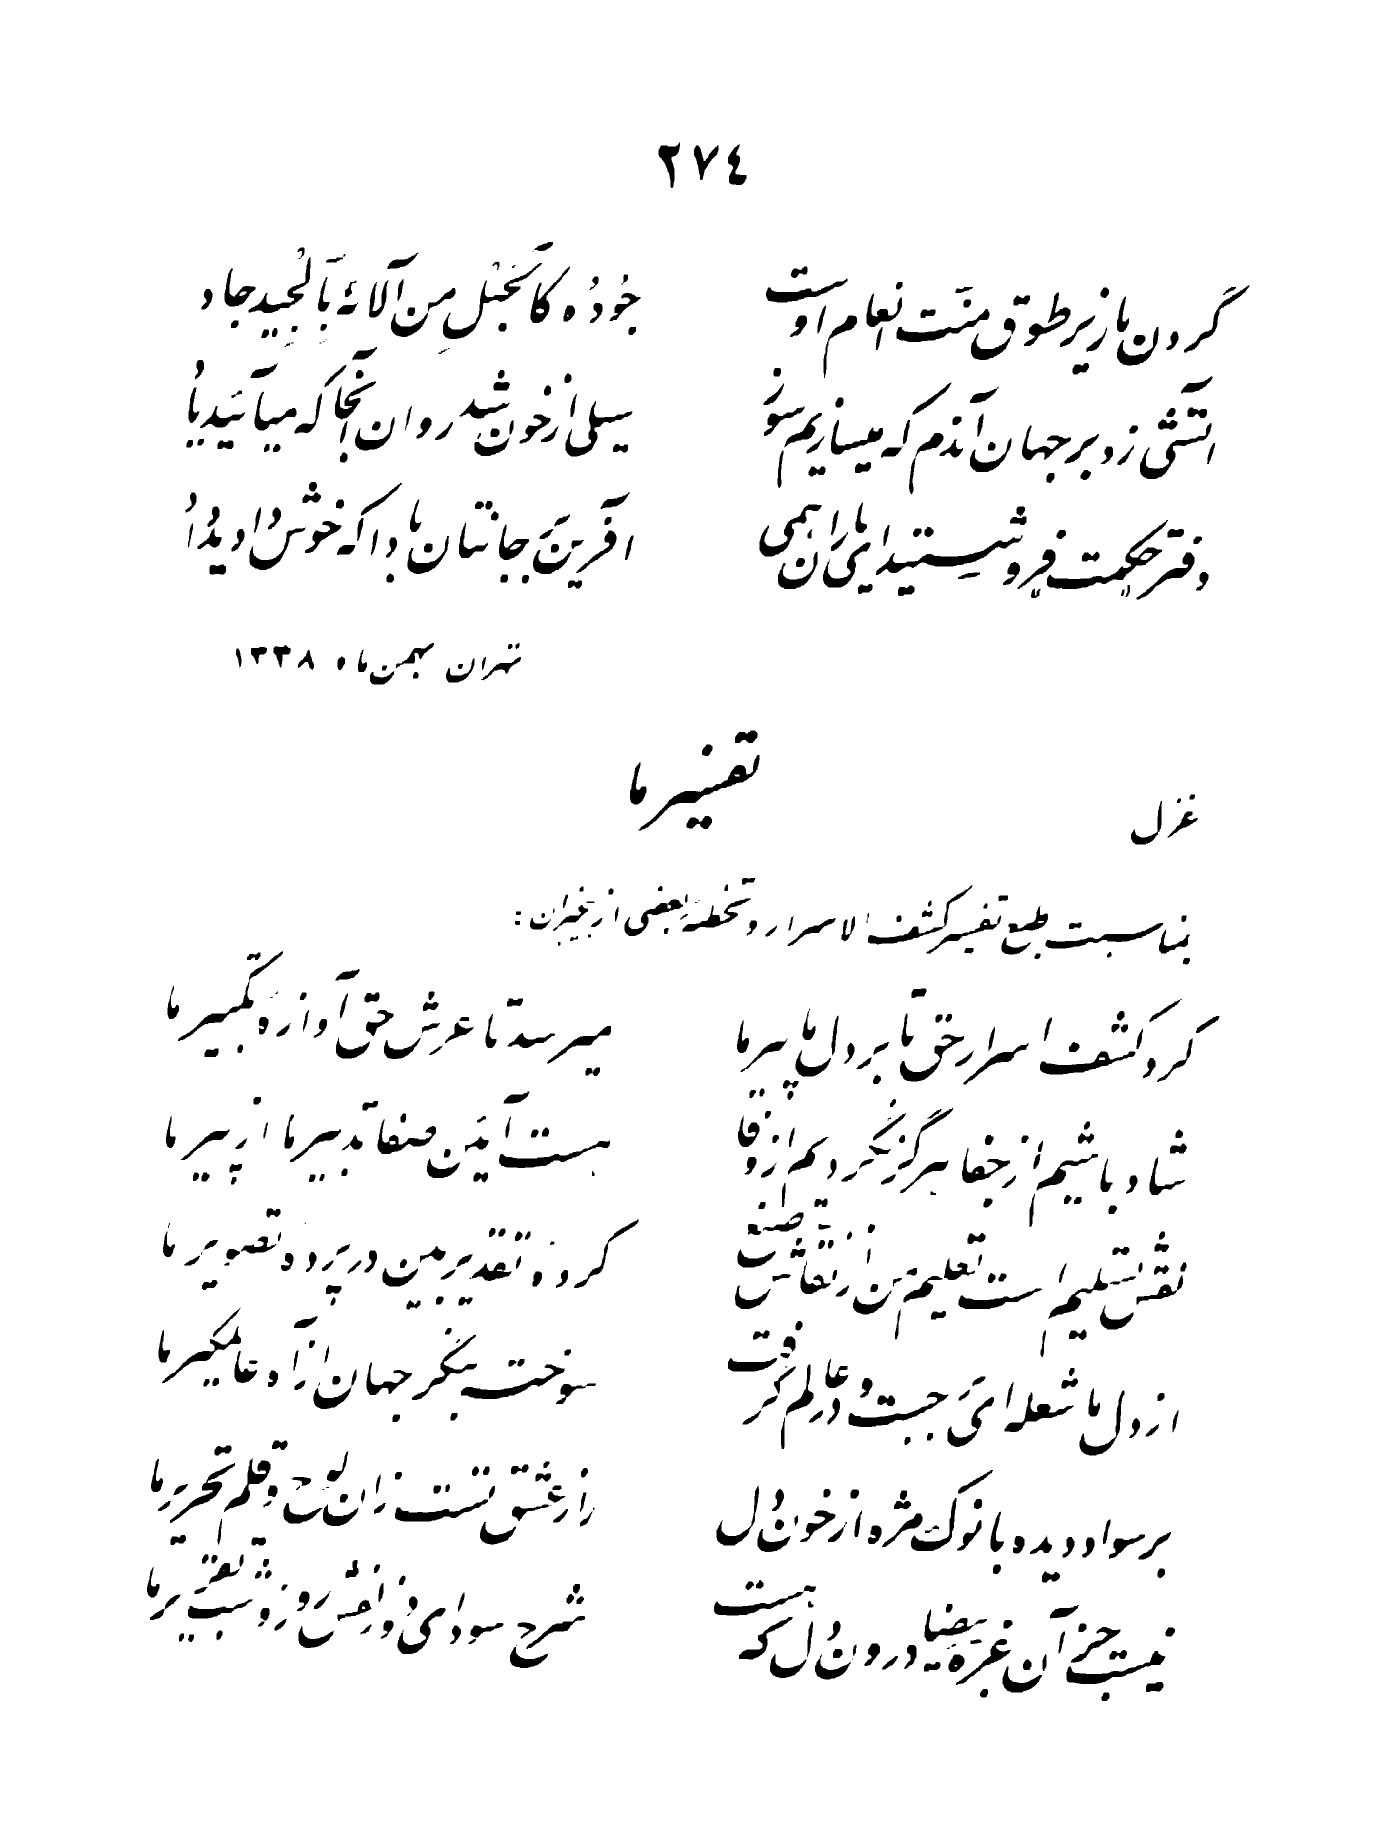 ٢٧٤
گردن ما زیر طوق منّت انعام اوست
جُودُه کَالْجَبَلِ مِن آلائهٔ بِالْجِید جاد
آتشی زد بر جهان آندم که میسازیم سوز
سیلی از خون شد روان آنجا که میآئید یاد
دفتر حکمت فرو شستید ای یاران همی
آفرین بر جانتان بادا که خوش دادید داد
تهران بهمن ماه ۱۳۳۸
تفسیر ما
غزل
بمناسبت طبع تفسیر کشف الاسرار و تخطئهٔ بعضی از بیخبران :
کرد کشف اسرار حق تا بر دل ما پیر ما
میرسد تا عرش حق آوازهٔ تکبیر ما
شاد باشیم از جفا هرگز نگردیم از وفا
هست آئین صفا تدبیر ما از پیر ما
نقش تسلیم است تعلیم من از نقاش صنع
کرده تقدیر مبین در پرده تصویر ما
از دل ما شعله ای جست و در عالم گرفت
سوخت بنگر جهان از آه عالمگیر ما
بر سواد دیده با نوک مژه از خون دل
راز عشق تست زان لوح و قلم تحریر ما
نیست جز آن غرهٔ بیضا درون دل که هست
شرح سودای تو و زلفش روز و شب تقریر ما